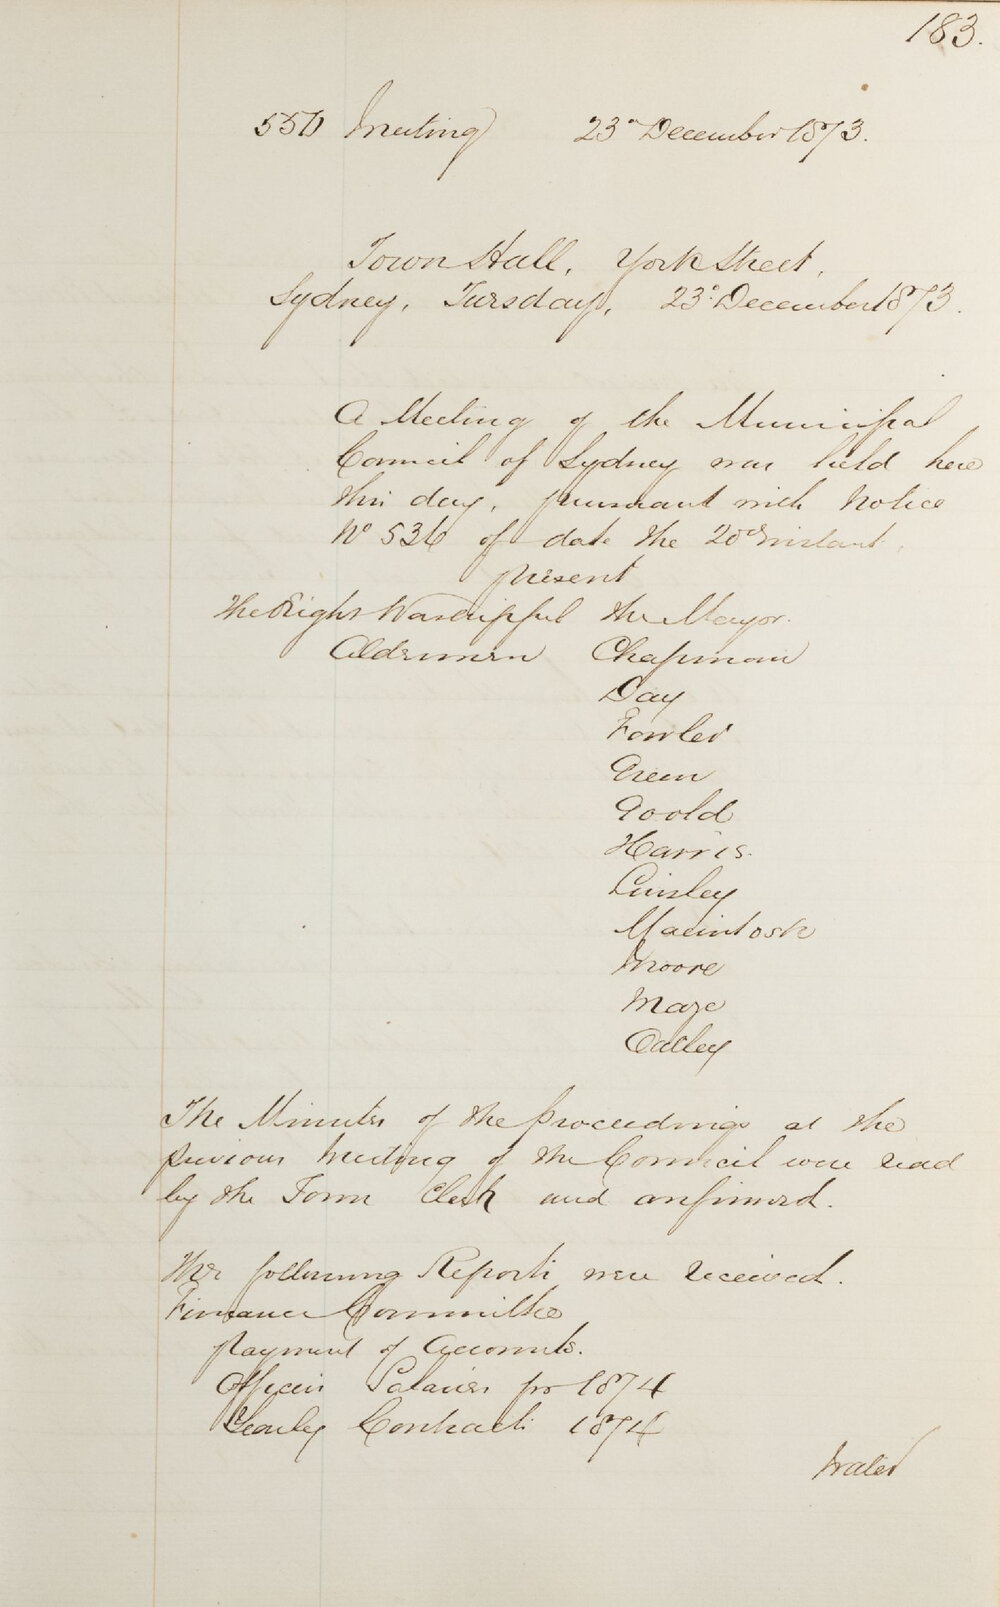 183.
550 Meeting 23d December 1873.
Town Hall, York Street,
Sydney, Tuesday, 23d December 1873.
A Meeting of the Municipal
Council of Sydney was held here
this day, pursuant with Notice
No 536 of date the 20th instant,
present
The Right Worshipful the Mayor.
Aldermen Chapman
Day
Fowler
Green
Goold
Harris.
Linsley
Macintosh
Moore
Maze
Oatley
The Minutes of the Proceedings at the
previous Meeting of the Council were read
by the Town Clerk and confirmed.
The following Reports were received.
Finance Committee
Payment of Accounts.
Officers Salaries for 1874
Yearly Contracts 1874
Water